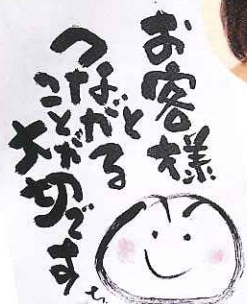 お客様
と
つながる
ことが
大切です